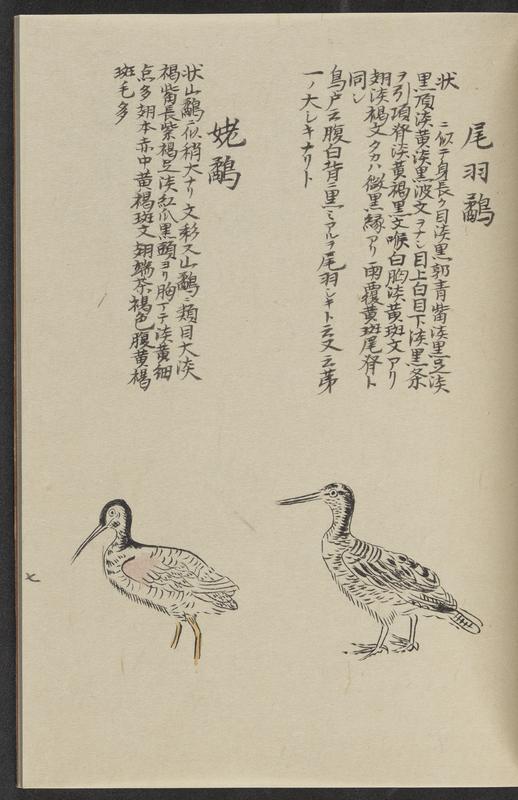 尾羽鷸
状　ニ似テ身長ク目淡黒郭青觜淡黒足淡
黒頂淡黄淡黒波文ヲナシ目上白目下淡黒条
ヲ引項脊淡黄褐黒文喉白胸淡黄斑文アリ
翅淡褐文クカハ微黒縁アリ雨覆黄斑尾脊ト
同シ
鳥戸云腹白背ニ黒ミアルヲ尾羽シギト云又云第
一ノ大シギナリト
姥鷸
状山鷸ニ似稍大ナリ文彩又山鷸ニ類目大淡
褐觜長紫褐足淡紅爪黒頭ヨリ胸マテ淡黄細
点多翅本赤中黄褐斑文翅端茶褐色腹黄褐
斑毛多
七